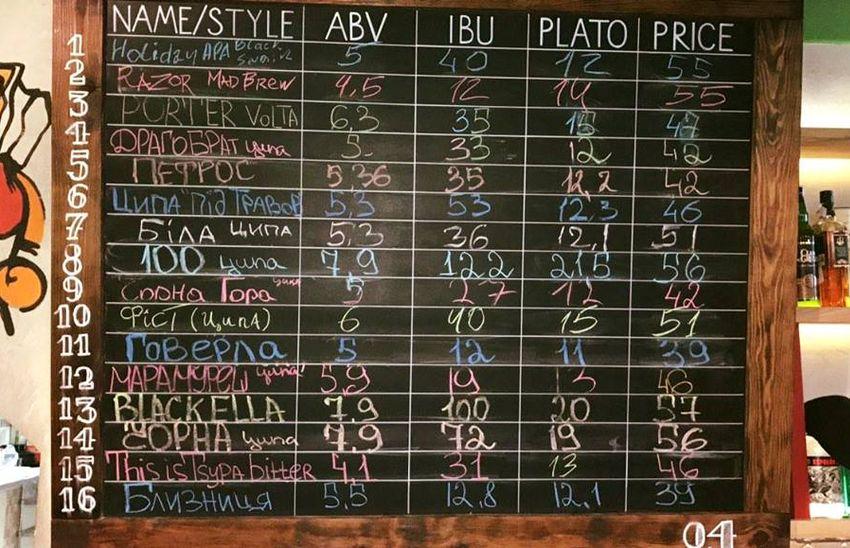 NAME/STYLE ABV IBU PLATO PRICE
1 Holiday APA Black 5 40 12 55
2 RAZOR MAD BREW 4,5 12 14 55
3 PORTER VOLTA 6,3 35 47
4 ДРАГОБРАТ ципа 5 33 12 42
5 ПЕТРОС 5,36 35 12,2 42
6 Ципа "Під Травов 5,3 53 12,3 46
7 Біла ципа 5,3 36 12,1 51
8 100 ципа 7,9 122 21,5 56
9 Гора ципа 5 27 12 42
10 Фіст (ЦипА) 6 40 15 51
11 Говерла 5 12 11 39
12 МАРАМУРЕШ ципа 5,9 19 13 46
13 BLACK ELLA 7,9 100 20 57
14 ЧОРНА ципа 7,9 72 19 56
15 This is Tsypa bitter 4,1 31 13 46
16 Близниця 5,5 12,8 12,1 39
04